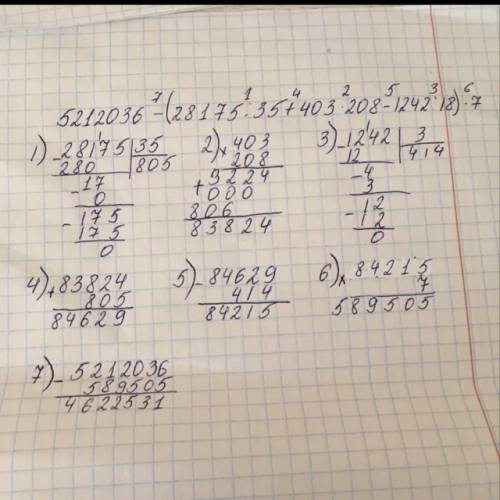 7 1 4 2 5 3 6
5212036 - (28175 : 35 + 403 · 208 - 1242 : 18) · 7
1) - 28175 | 35
280 | 805
- 17
0
- 175
175
0
2) × 403
208
+ 3224
000
806
83824
3) - 1242 | 3
12 | 414
- 4
3
- 12
12
0
4) + 83824
805
84629
5) - 84629
414
84215
6) × 84215
7
589505
7) - 5212036
589505
4622531